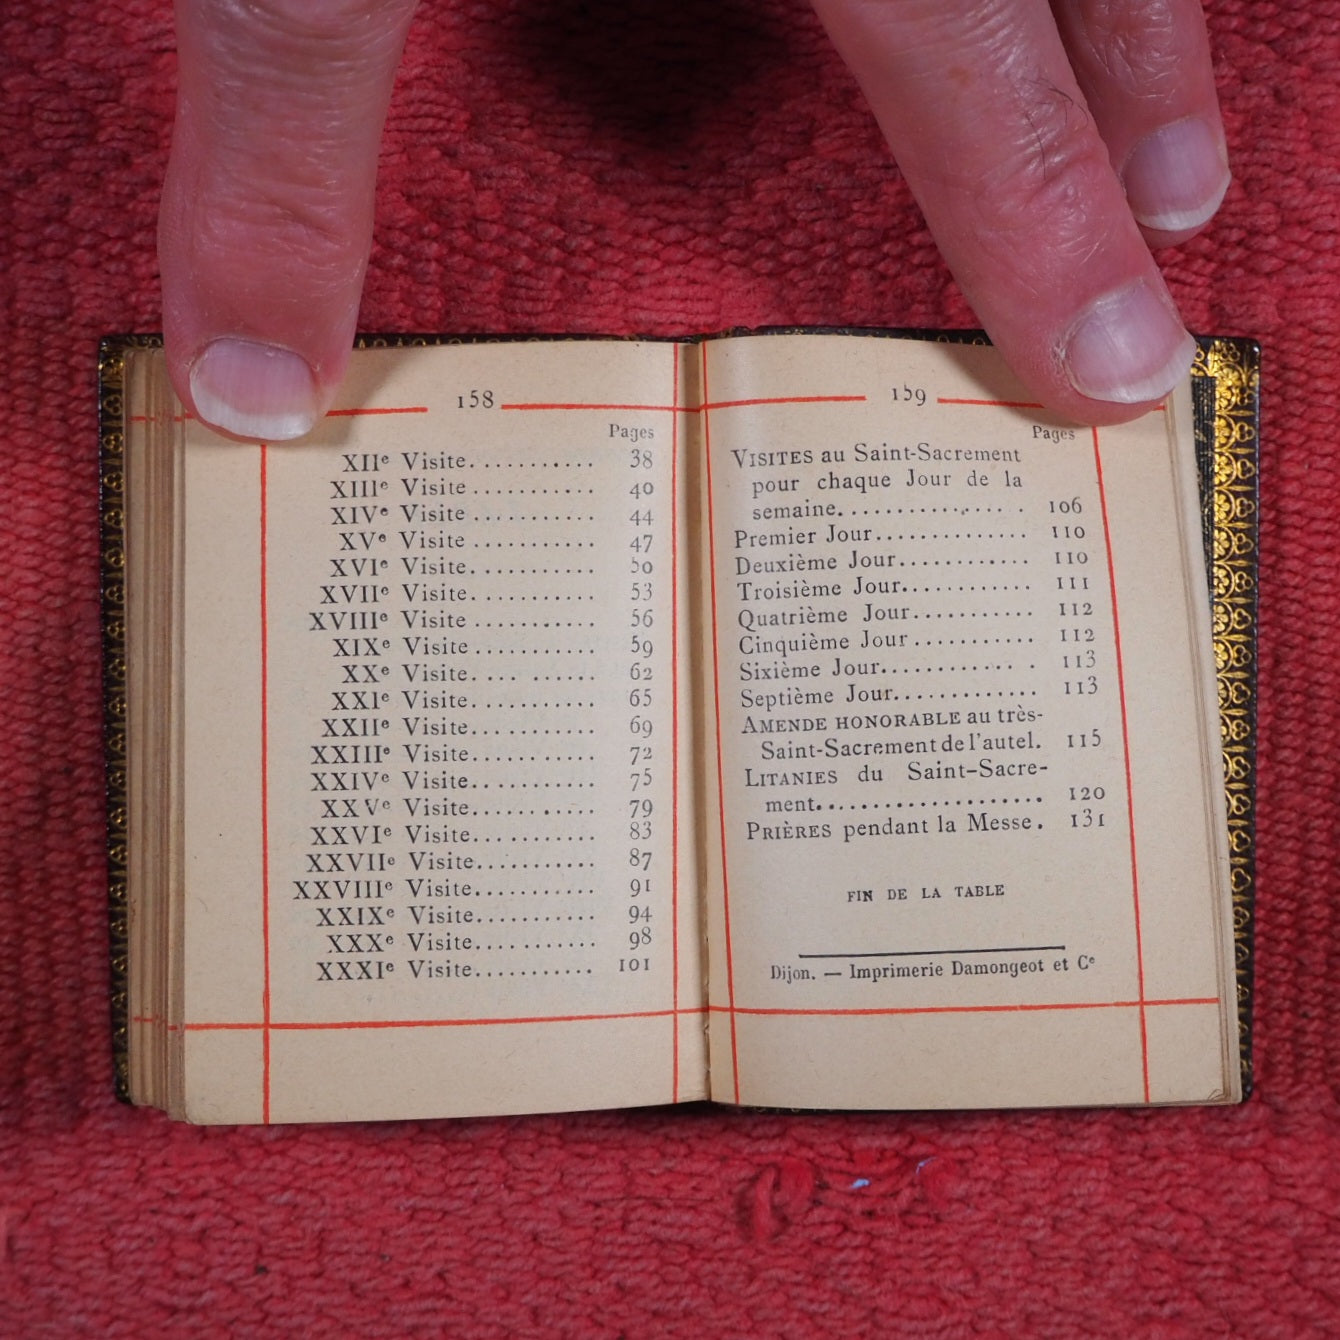 158
Pages
XIIe Visite........... 38
XIIIe Visite........... 40
XIVe Visite........... 44
XVe Visite........... 47
XVIe Visite........... 50
XVIIe Visite........... 53
XVIIIe Visite........... 56
XIXe Visite........... 59
XXe Visite.... ...... 62
XXIe Visite........... 65
XXIIe Visite........... 69
XXIIIe Visite........... 72
XXIVe Visite........... 75
XXVe Visite........... 79
XXVIe Visite........... 83
XXVIIe Visite........... 87
XXVIIIe Visite........... 91
XXIXe Visite........... 94
XXXe Visite........... 98
XXXIe Visite........... 101
159
Pages
VISITES au Saint-Sacrement
pour chaque Jour de la
semaine.............. 106
Premier Jour............. 110
Deuxième Jour............ 110
Troisième Jour............ 111
Quatrième Jour.......... 112
Cinquième Jour.......... 112
Sixième Jour............ . 113
Septième Jour............ 113
AMENDE HONORABLE au très-
Saint-Sacrement de l'autel. 115
LITANIES du Saint-Sacre-
ment.................... 120
PRIÈRES pendant la Messe. 131
FIN DE LA TABLE
Dijon. — Imprimerie Damongeot et Ce